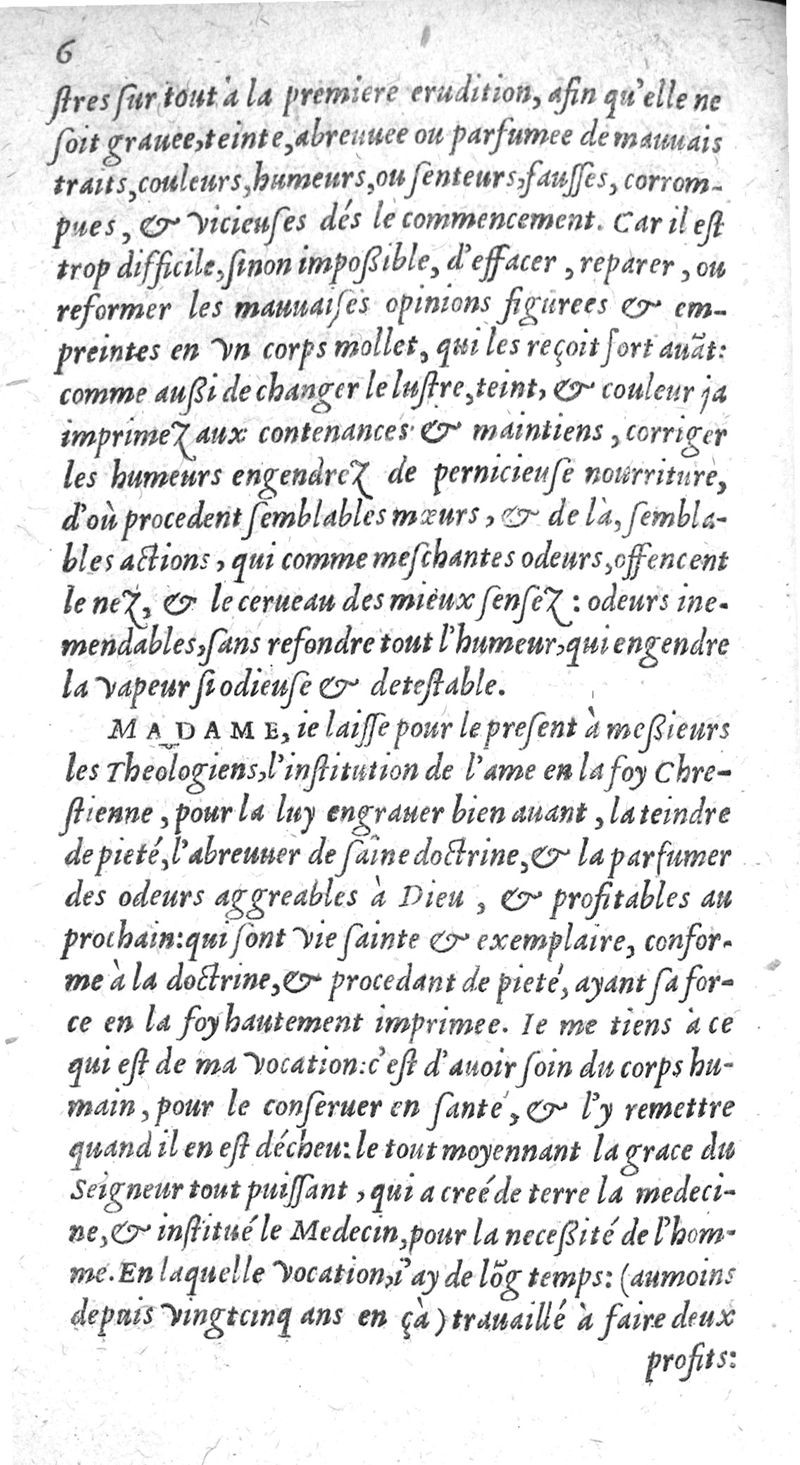 6
ſtres ſur tout à la premiere erudition, afin qu'elle ne
ſoit grauee, teinte, abreuuee ou parfumee de mauuais
traits, couleurs, humeurs, ou ſenteurs, fauſſes, corrom-
pues, & vicieuſes dés le commencement. Car il eſt
trop difficile, ſinon impoßible, d'effacer, reparer, ou
reformer les mauuaiſes opinions figurees & em-
preintes en vn corps mollet, qui les reçoit fort auãt:
comme außi de changer le luſtre, teint, & couleur ja
imprimez aux contenances & maintiens, corriger
les humeurs engendrez de pernicieuſe nourriture,
d'où procedent ſemblables mœurs, & de là, ſembla-
bles actions, qui comme meſchantes odeurs, offencent
le nez, & le cerueau des mieux ſenſez: odeurs ine-
mendables, ſans refondre tout l'humeur, qui engendre
la vapeur ſi odieuſe & deteſtable.
MADAME, ie laiſſe pour le preſent à meßieurs
les Theologiens, l'inſtitution de l'ame en la foy Chre-
ſtienne, pour la luy engrauer bien auant, la teindre
de pieté, l'abreuuer de ſaine doctrine, & la parfumer
des odeurs aggreables à Dieu, & profitables au
prochain: qui ſont vie ſainte & exemplaire, confor-
me à la doctrine, & procedant de pieté, ayant ſa for-
ce en la foy hautement imprimee. Ie me tiens à ce
qui eſt de ma vocation: c'eſt d'auoir ſoin du corps hu-
main, pour le conſeruer en ſanté, & l'y remettre
quand il en eſt décheu: le tout moyennant la grace du
Seigneur tout puiſſant, qui a creé de terre la medeci-
ne, & inſtitué le Medecin, pour la neceßité de l'hom-
me. En laquelle vocation, i'ay de lõg temps: (aumoins
depuis vingtcinq ans en çà) trauaillé à faire deux
profits: